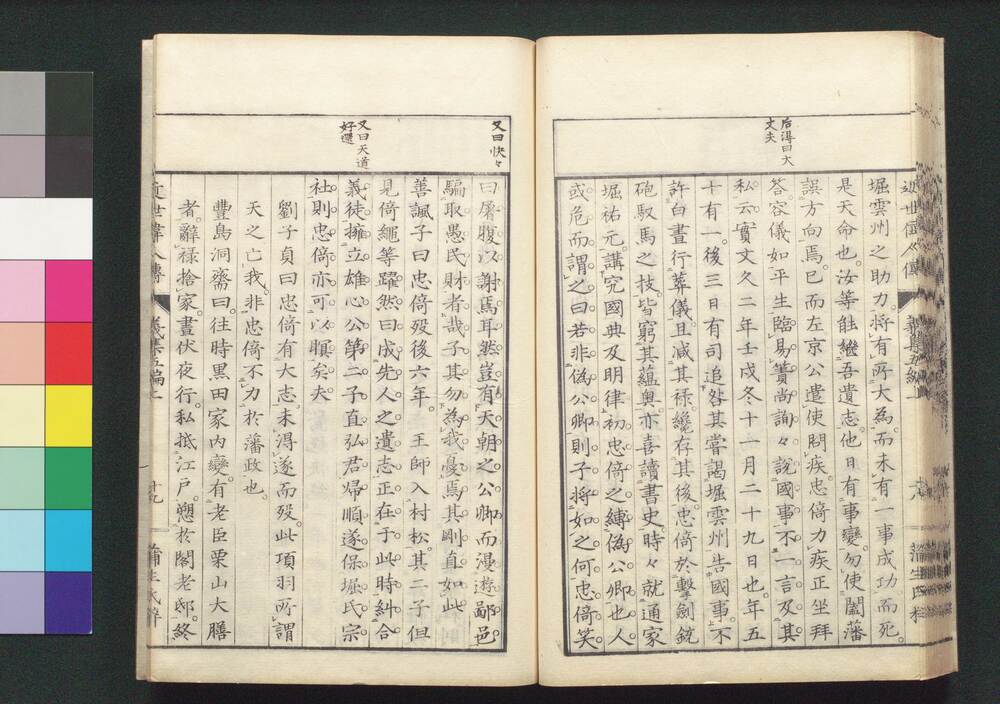 后得曰大
丈夫
堀雲州之助力。將有所大為。而未有一事成功。而死。
是天命也。汝等能繼吾遺志。他日有事變。勿使闔藩
誤方向焉。已而左京公遣使問疾。忠倚力疾正坐拜
答。容儀如平生。臨易簀尚諵々說國事。不一言及其
私云。實文久二年壬戌冬十一月二十九日也。年五
十有一。後三日有司追咎其嘗謁堀雲州告國事。不
許白晝行葬儀。且減其祿纔存其後。忠倚於擊劍銃
砲馭馬之技。皆窮其蘊奧。亦喜讀書史。時々就通家
堀祐元。講究國典及明律。初忠倚之縛偽公卿也。人
或危而謂之曰。若非偽公卿。則子將如之何。忠倚笑
又曰快々
又曰天道
好還
曰屠腹以謝焉耳。然豈有天朝之公卿。而漫遊鄙邑
騙取愚民財者哉。子其勿為我憂焉。其剛直如此。
善諷子曰。忠倚歿後六年。王師入村松。其二子但
見倚繩等躍然曰。成先人之遺志。正在于此時。糾合
義徒。擁立雄心公第二子直弘君。歸順遂保堀氏宗
社。則忠倚亦可以瞑矣夫。
劉子貞曰。忠倚有大志。未得遂而歿。此項羽所謂
天之亡我。非忠倚不力於藩政也。
豐島洞齋曰。往時黑田家內變。有老臣栗山大膳
者。辭祿捨家。晝伏夜行。私抵江戶。愬於閣老邸。終
近世偉人傳
義集五編上
十九
蒲生氏梓